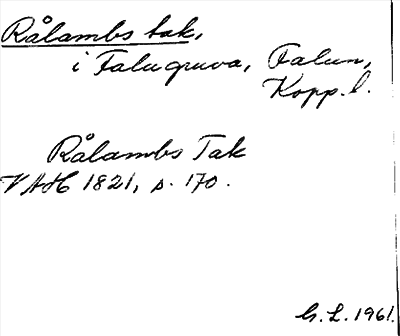 Rålambs tak,
i Falugruva, Falun,
Kopp. l.
Rålambs Tak
VAH 1821, s. 170.
G. L. 1961.